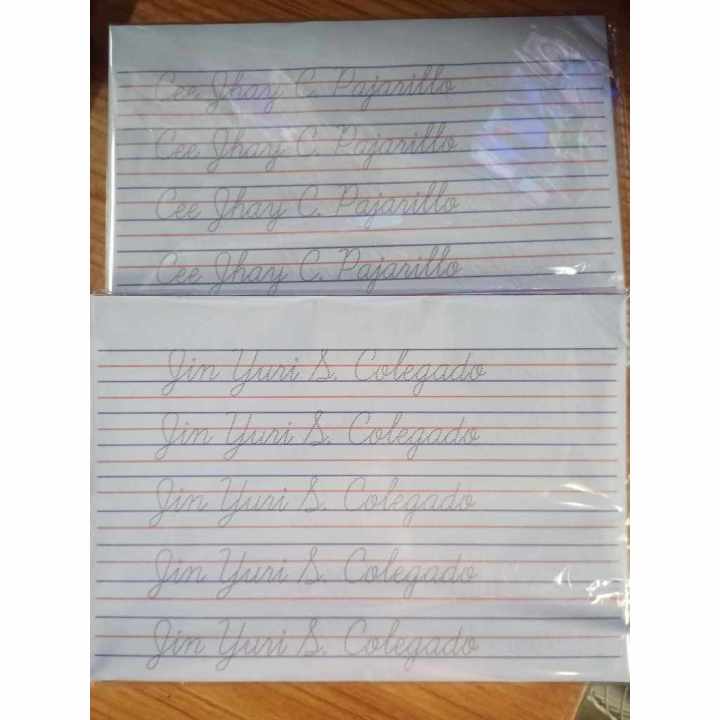 Cee Jhay C. Pajarillo
Cee Jhay C. Pajarillo
Cee Jhay C. Pajarillo
Cee Jhay C. Pajarillo
Jin Yuri S. Colegado
Jin Yuri S. Colegado
Jin Yuri S. Colegado
Jin Yuri S. Colegado
Jin Yuri S. Colegado